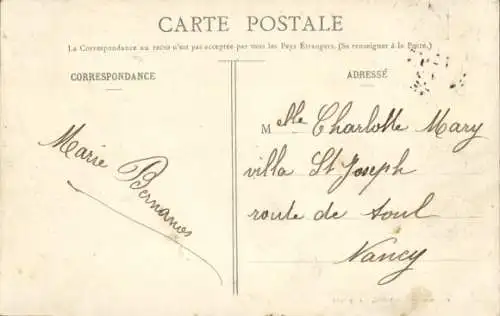 CARTE POSTALE
La Correspondance au recto n'est pas acceptée par tous les Pays Étrangers. (Se renseigner à la Poste.)
CORRESPONDANCE
ADRESSÉ
Marie Bernanos
Melle Charlotte Mary
villa St Joseph
route de toul
Nancy